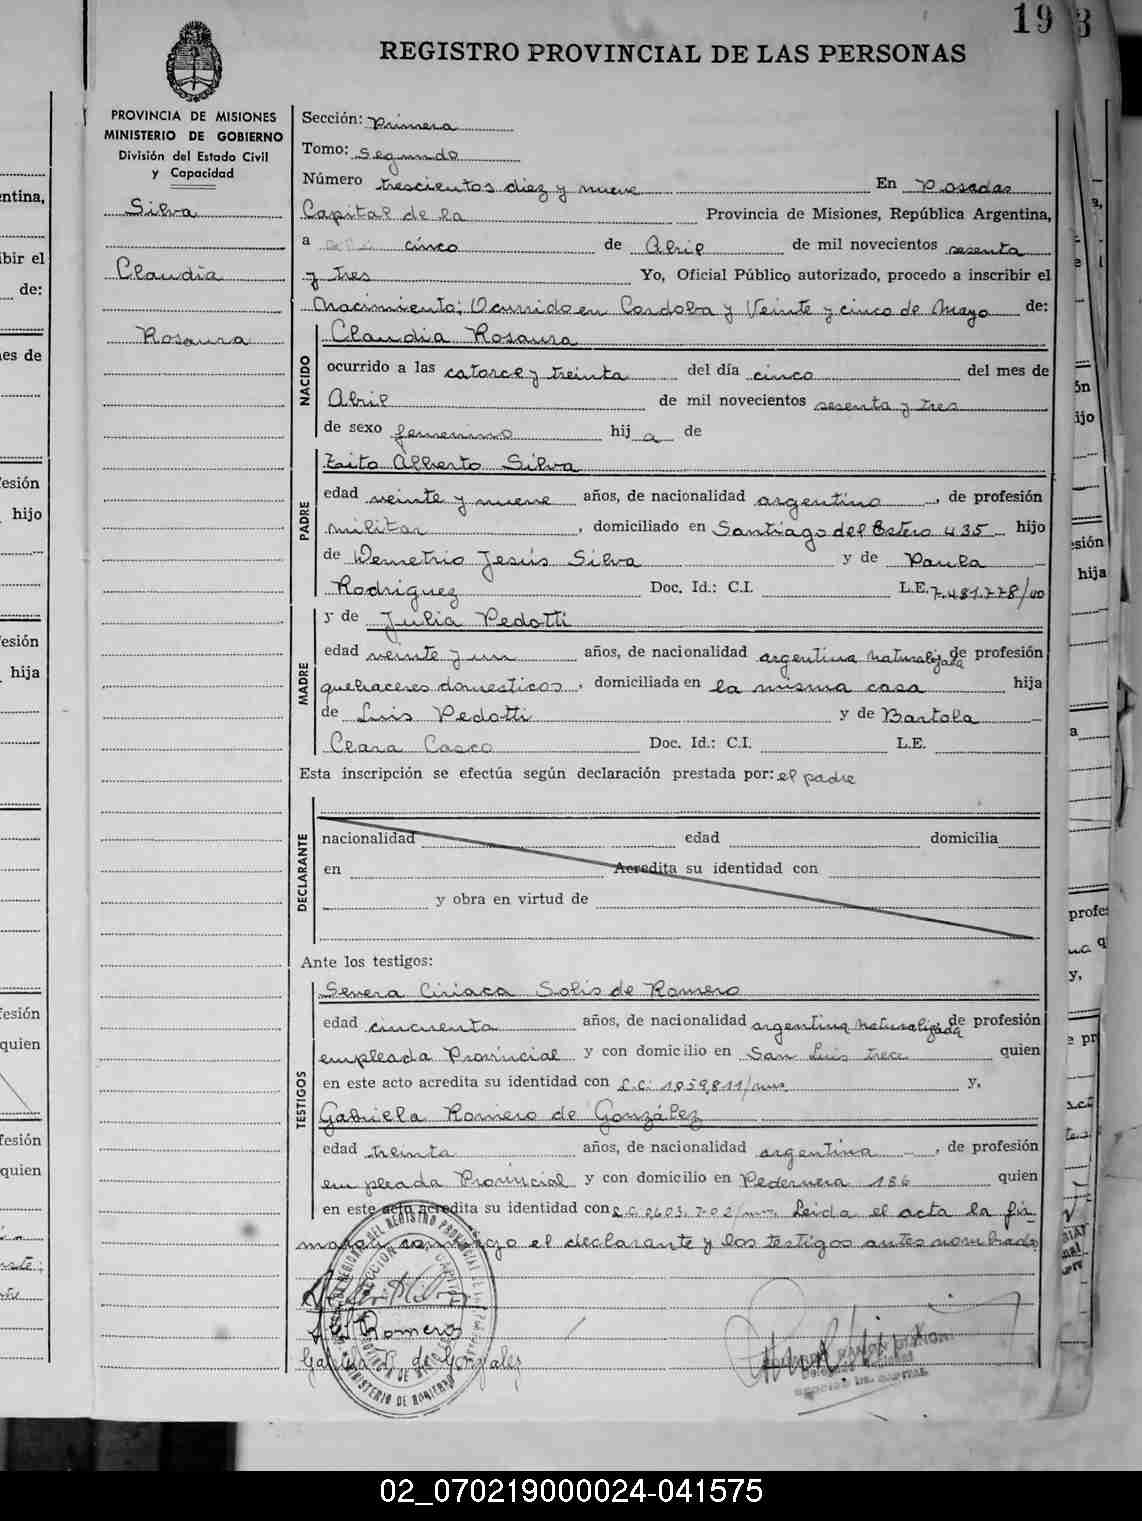 19 3
REGISTRO PROVINCIAL DE LAS PERSONAS
PROVINCIA DE MISIONES
MINISTERIO DE GOBIERNO
División del Estado Civil
y Capacidad
Silva
Claudia
Rosaura
Sección: Primera
Tomo: Segundo
Número trescientos diez y nueve En Posadas
Capital de la Provincia de Misiones, República Argentina,
a cinco de Abril de mil novecientos sesenta
y tres Yo, Oficial Público autorizado, procedo a inscribir el
Nacimiento; Ocurrido en Cordoba y Veinte y cinco de Mayo de:
NACIDO
Claudia Rosaura
ocurrido a las catorce y treinta del día cinco del mes de
Abril de mil novecientos sesenta y tres
de sexo femenino hij a de
PADRE
Alberto Silva
edad veinte y nueve años, de nacionalidad argentino, de profesión
militar, domiciliado en Santiago del Estero 435 hijo
de Demetrio Jesús Silva y de Paula
Rodriguez Doc. Id.: C.I. L.E. 7.481.778/
MADRE
y de Julia Pedotti
edad veinte y un años, de nacionalidad argentina naturalizada de profesión
quehaceres domesticos, domiciliada en la misma casa hija
de Luis Pedotti y de Bartola
Clara Casco Doc. Id.: C.I. L.E.
Esta inscripción se efectúa según declaración prestada por: el padre
DECLARANTE
nacionalidad edad domicilia
en Acredita su identidad con
y obra en virtud de
Ante los testigos:
TESTIGOS
Severa Ciriaca Solis de Romero
edad cincuenta años, de nacionalidad argentina naturalizada de profesión
empleada Provincial y con domicilio en San Luis trece quien
en este acto acredita su identidad con L.C. 1.059.811/ y,
Gabriela Romero de González
edad treinta años, de nacionalidad argentina, de profesión
empleada Provincial y con domicilio en Pedernera 186 quien
en este acto acredita su identidad con L.C. 2.603.202/ Leida el acta la fir-
maron conmigo el declarante y los testigos antes nombrados
Romero
de Gonzalez
MINISTERIO DE GOBIERNO
02_070219000024-041575